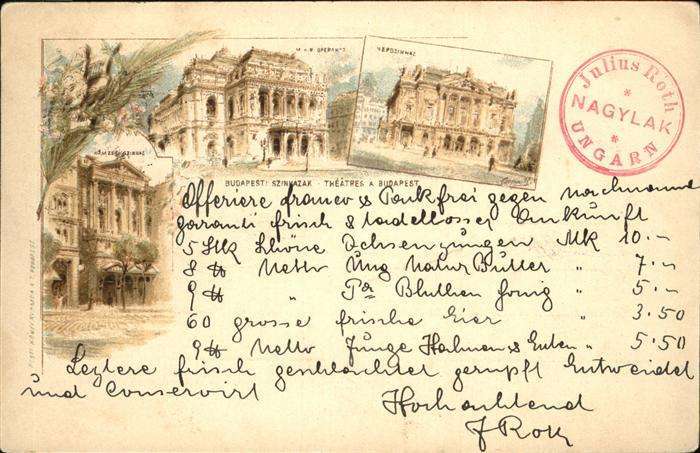 M. KIR. OPERAHÁZ
NÉPSZINHÁZ
NEMZETI SZINHÁZ
BUDAPESTI SZINHÁZAK - THÉÂTRES A BUDAPEST
Julius Roth
NAGYLAK
UNGARN
Offeriere franco & Packfrei gegen nachname
garanti frisch & tadellosser Ankunft
5 Stk Schöne Ochsenzungen Mk 10.–
8 ℔ Netto Ung Natur Butter " 7.–
9 ℔ " Pa Bluthen honig " 5.–
60 grosse frische Eier " 3.50
9 ℔ Netto Junge & Enten " 5.50
Leztere frisch geschlachtet gerupft Entweidet
und conservirt
Hochachtend
J Roth